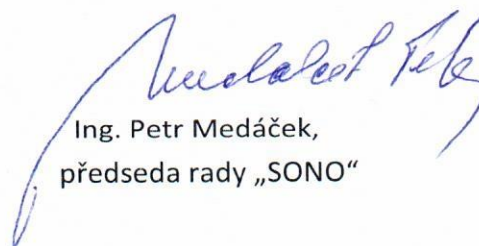 Ing. Petr Medáček,
předseda rady „SONO“